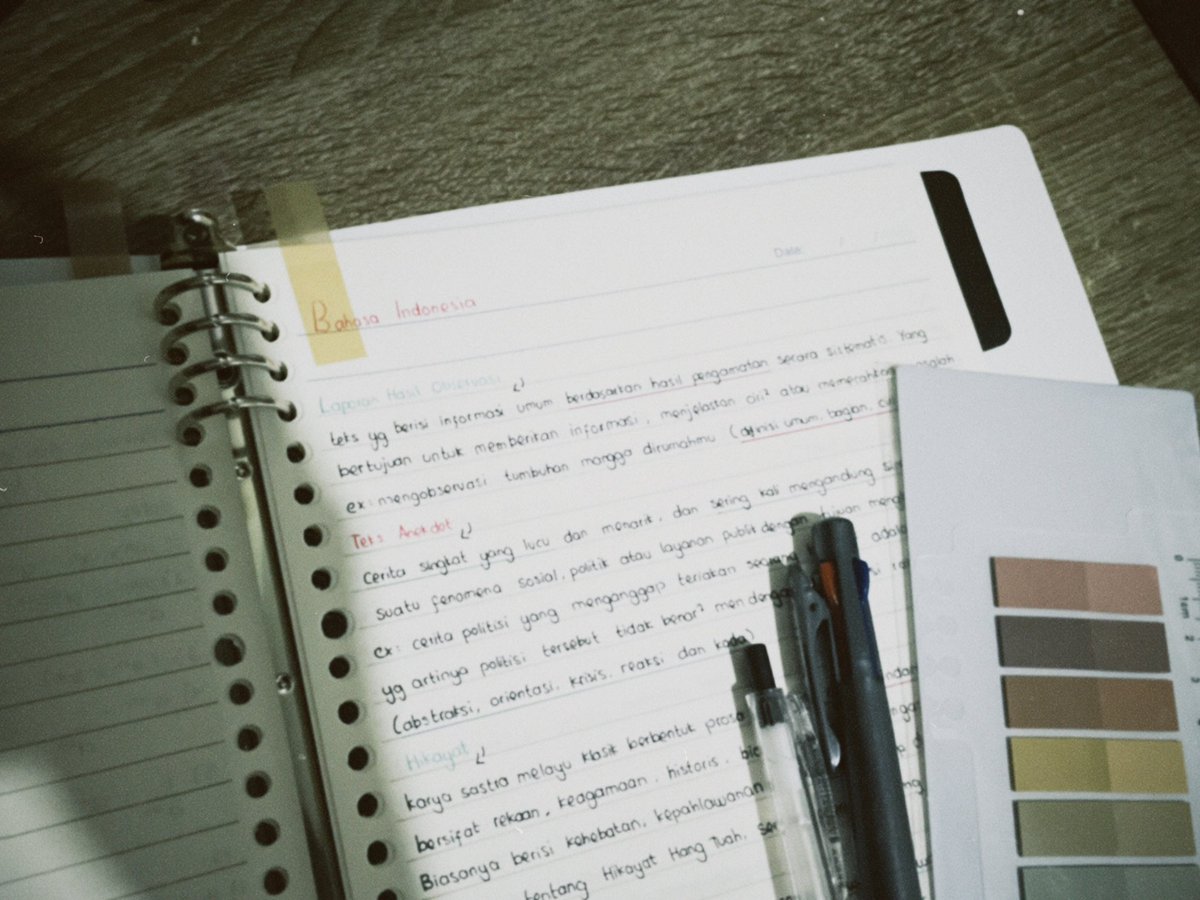 Date:
Bahasa Indonesia
Laporan Hasil Observasi
teks yg berisi informasi umum berdasarkan hasil pengamatan secara sistematis. Yang
bertujuan untuk memberikan informasi, menjelaskan ciri² atau
ex: mengobservasi tumbuhan mangga dirumahmu (definisi umum, bagian,
Teks Anekdot
Cerita singkat yang lucu dan menarik, dan sering kali mengandung
suatu fenomena sosial, politik atau layanan publik dengan tujuan
ex: cerita politisi yang menganggap teriakan seorang adala
yg artinya politisi tersebut tidak benar² mendenga
(abstraksi, orientasi, krisis, reaksi dan koda)
Hikayat
karya sastra melayu klasik berbentuk prosa
bersifat rekaan, keagamaan, historis,
Biasanya berisi kehebatan, kepahlawanan
tentang Hikayat Hang Tuah,
0
1cm
2
3